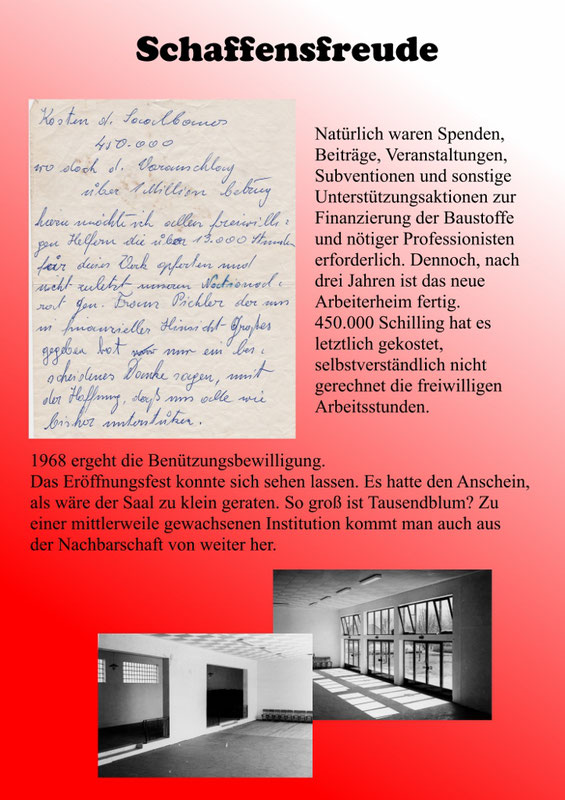 Schaffensfreude
Kosten d. Saalbaues
450.000
wo doch d. Voranschlag
über 1 Million betrug
hiezu möchte ich allen freiwilli-
gen Helfern die über 13.000 Stunden
für dieses Werk opferten und
nicht zuletzt unserem Nationalrat
gen. Franz Pichler der uns
in finanzieller Hinsicht Großes
gegeben hat nur ein be-
scheidenes Danke sagen, mit
der Hoffnung, daß uns alle wie
bisher unterstützen.
Natürlich waren Spenden,
Beiträge, Veranstaltungen,
Subventionen und sonstige
Unterstützungsaktionen zur
Finanzierung der Baustoffe
und nötiger Professionisten
erforderlich. Dennoch, nach
drei Jahren ist das neue
Arbeiterheim fertig.
450.000 Schilling hat es
letztlich gekostet,
selbstverständlich nicht
gerechnet die freiwilligen
Arbeitsstunden.
1968 ergeht die Benützungsbewilligung.
Das Eröffnungsfest konnte sich sehen lassen. Es hatte den Anschein,
als wäre der Saal zu klein geraten. So groß ist Tausendblum? Zu
einer mittlerweile gewachsenen Institution kommt man auch aus
der Nachbarschaft von weiter her.